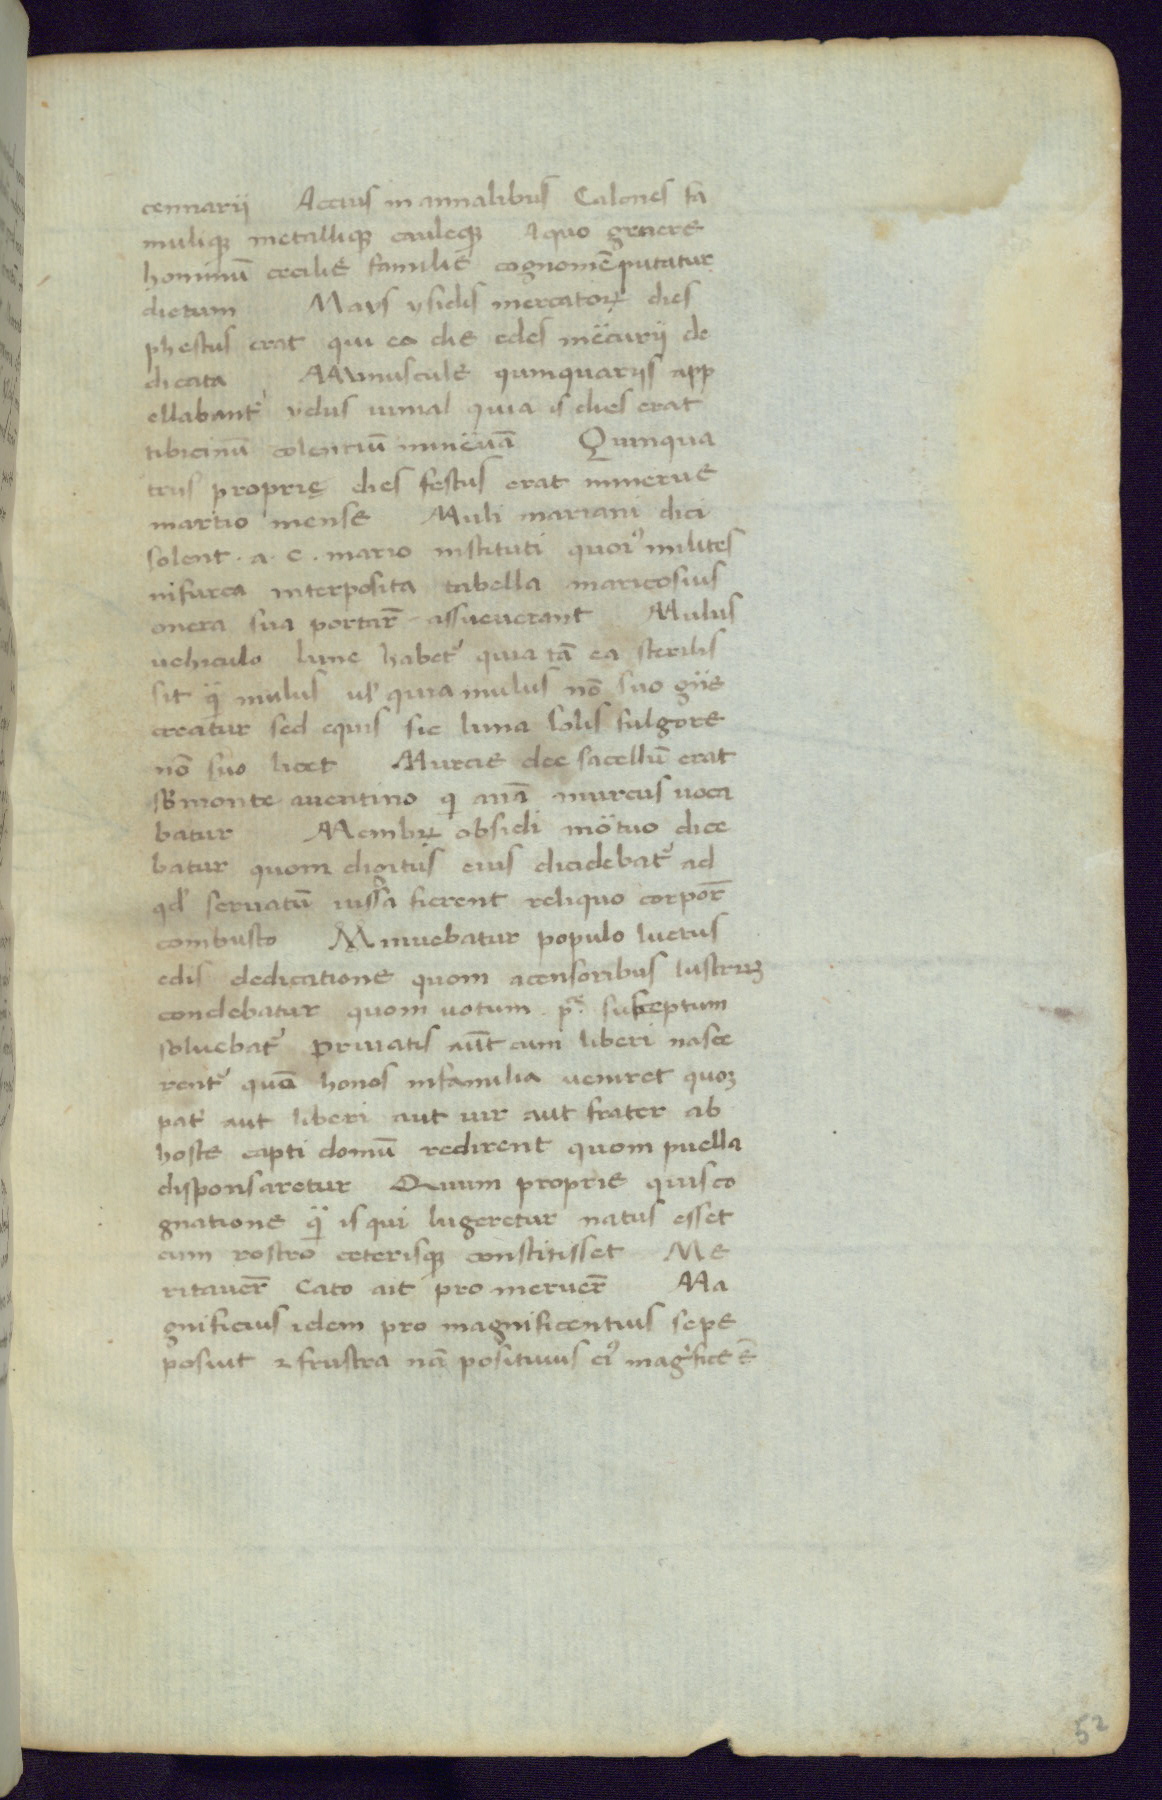 cennarij Accius in annalibus Calones fa
muliq; metalliq; cauleq; A quo genere
hominū cecilie familie cognomē putatur
dictum Mays ysidis mercatoꝝ dies
phestus erat qui eo die edes mẽcurij de
dicata Minuscule quinquarijs app
ellabant᷑ ydus iunal quia is dies erat
tibicinū colentiū minẽuā Quinqua
trus proprię dies festus erat minerue
martio mense Muli mariani dici
solent . a . c . mario instituti quoꝰ milites
in furca interposita tabella maricosius
onera sua portar̄ assueuerant Mulus
uehiculo lune habet᷑ quia tā ea sterilis
sit q̄ mulus ul᷑ quia mulus nō suo gñe
creatur sed equis sic luna solis fulgore
nō suo licet Murcie dee sacellū erat
sb̄ monte auentino q̇ anā murcus uoca
batur Membꝝ absidi mõtuo dice
batur quom digitus eius dicidebat᷑ ad
qd᷑ seruatū iussa fierent reliquo corpor̄
combusto Minuebatur populo luctus
edis dedicatione quom acensoribus lustrum
condebatur quom uotum pᵃ. susceptum
soluebat᷑ Priuatis aūt cum liberi nasce
rent᷑ quō honos in familia ueniret quoꝫ
pat᷑ aut liberi aut uir aut frater ab
hoste capti domū redirent quom puella
disponsaretur Quum proprie quis co
gnatione q̄ is qui lugeretur natus esset
cum rostro ceterisq; constitisset Me
ritauer̄ Cato ait pro meruer̄ Ma
gnificius idem pro magnificentius sepe
posuit & frustra nā positiuus eiꝰ mag᷑fice ē
52